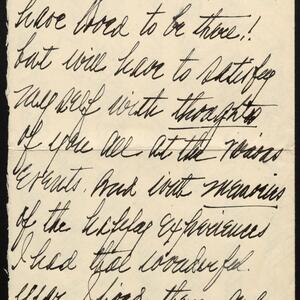 have loved to be there!!
but will have to satisfy
myself with thoughts
of you all at the various
events. And with memories
of the happy experiences
I had that wonderful
year I lived there and